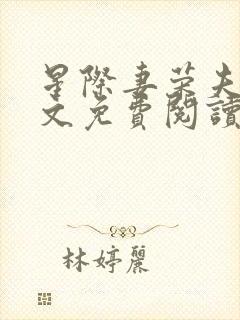 星際妻榮夫
文免費閱讀
林婷麗